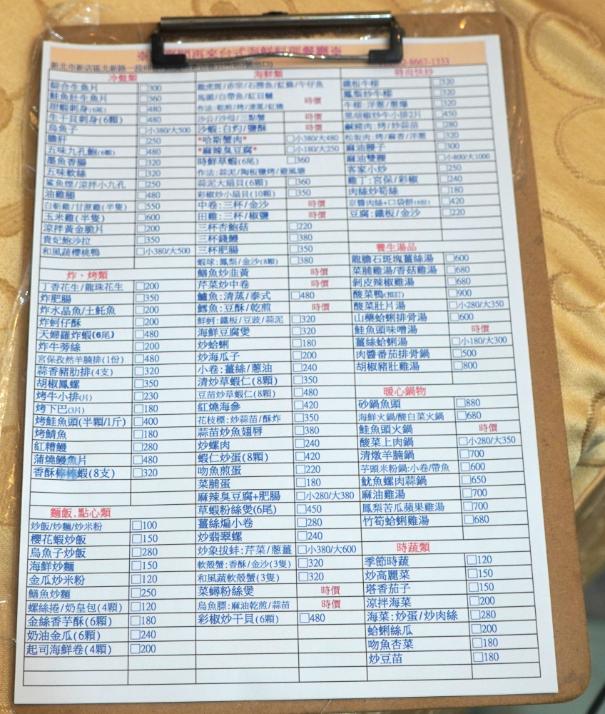 冷盤類
綜合生魚片 □300
鮭魚肚生魚片 □360
甜蝦刺身(6尾) □480
生干貝刺身(6顆) □480
烏魚子 □小380/大500
膽肝 □250
五味九孔鮑(6顆) □480
墨魚香腸 □320
五味軟絲 □320
鯊魚煙/涼拌小九孔 □250
油雞腸 □480
白斬雞/甘蔗雞(半隻) □550
玉米雞(半隻) □600
涼拌黃金脆片 □200
貴妃鮑沙拉 □350
和風蔬櫻桃鴨 □小380/大500
炸、烤類
丁香花生/龍珠花生 □200
炸肥腸 □350
炸水晶魚/土魠魚 □200
炸蚵仔酥 □200
天婦羅炸蝦(6尾) □480
炸牛蒡絲 □200
宮保孜然羊腩排(1份) □480
蒜香豬肋排(4支) □320
胡椒鳳螺 □350
烤牛小排(3片) □230
烤下巴(3片) □180
烤鮭魚頭(半顆/1斤) □400
烤鯖魚 □180
紅糟鰻 □280
蒲燒鰻魚片 □480
香酥棒棒蝦(8支) □320
麵飯、點心類
炒飯/炒麵/炒米粉 □100
櫻花蝦炒飯 □150
烏魚子炒飯 □280
海鮮炒麵 □150
金瓜炒米粉 □120
鱔魚炒麵 □250
螺絲捲/奶皇包(4顆) □120
金絲香芋酥(6顆) □180
奶油金瓜(6顆) □240
起司海鮮卷(4顆) □200
海鮮類
時價
沙公/沙母/三點蟹 時價
沙蝦:白灼/鹽酥 時價
*哈斯蟹肉* □小380/大480
*麻辣臭豆腐* □小180/大250
時鮮草蝦(6尾) □360
蒜泥大扇貝(6顆) □360
彩椒炒小扇貝(6顆) □350
中卷:三杯/金沙 時價
田雞:三杯/椒鹽 時價
三杯杏鮑菇 □220
三杯錢鰻 □380
三杯肥腸 □350
蝦球:鳳梨/金沙(8顆) □380
鱔魚炒韭黃 時價
芹菜炒中卷 時價
鱸魚:清蒸/泰式 □480
鱈魚:豆酥/乾煎 時價
鮮蚵:鐵板/豆豉/蒜泥 □320
海鮮豆腐煲 □320
炒蛤蜊 □180
炒海瓜子 □200
小卷:薑絲/蔥油 □240
清炒草蝦仁(8顆) □350
豆苗炒草蝦(8顆) □380
紅燒海參 □420
花枝標:炒蒜苗/酥炸 □350
蒜苗炒魚翅唇 □380
炒螺肉 □240
蝦仁炒蛋(8顆) □420
吻魚煎蛋 □220
菜脯蛋 □180
麻辣臭豆腐+肥腸 □小280/大380
草蝦粉絲煲(6尾) □450
薑絲焗小卷 □280
炒翡翠螺 □240
炒象拔蚌:芹菜/蔥薑 □小380/大600
軟殼蟹:香酥/金沙(3隻) □320
和風蔬軟殼蟹(3隻) □320
菜蟳粉絲煲 時價
烏魚膘:麻油乾煎/蒜苗 時價
彩椒炒干貝(6顆) □480
時尚快炒
麻油腰子 □300
麻油雙腰 □小400/大1000
客家小炒 □250
雞丁:宮保/彩椒 □240
肉絲炒筍絲 □180
京醬肉絲+口袋餅(6粒) □420
豆腐:鐵板/金沙 □220
養生湯品
龍膽石斑塊薑絲湯 □600
菜脯雞湯/香菇雞湯 □680
剝皮辣椒雞湯 □680
酸菜鴨(預訂) □900
酸菜肚片湯 □小280/大350
山藥蛤蜊排骨湯 □600
鮭魚頭味噌湯 時價
薑絲蛤蜊湯 □小180/大300
肉醬番茄排骨鍋 □500
胡椒豬肚雞湯 □800
暖心鍋物
砂鍋魚頭 □880
海鮮火鍋/酸白菜火鍋 □680
鮭魚頭火鍋 時價
酸菜上肉鍋 □小280/大350
清燉羊腩鍋 □700
芋頭米粉鍋:小卷/帶魚 □600
魷魚螺肉蒜鍋 □650
麻油雞湯 □700
鳳梨苦瓜蘋果雞湯 □700
竹筍蛤蜊雞湯 □680
時蔬類
季節時蔬 □120
炒高麗菜 □150
塔香茄子 □150
涼拌海菜 □200
海菜:炒蛋/炒肉絲 □280
蛤蜊絲瓜 □200
吻魚杏菜 □180
炒豆苗 □180